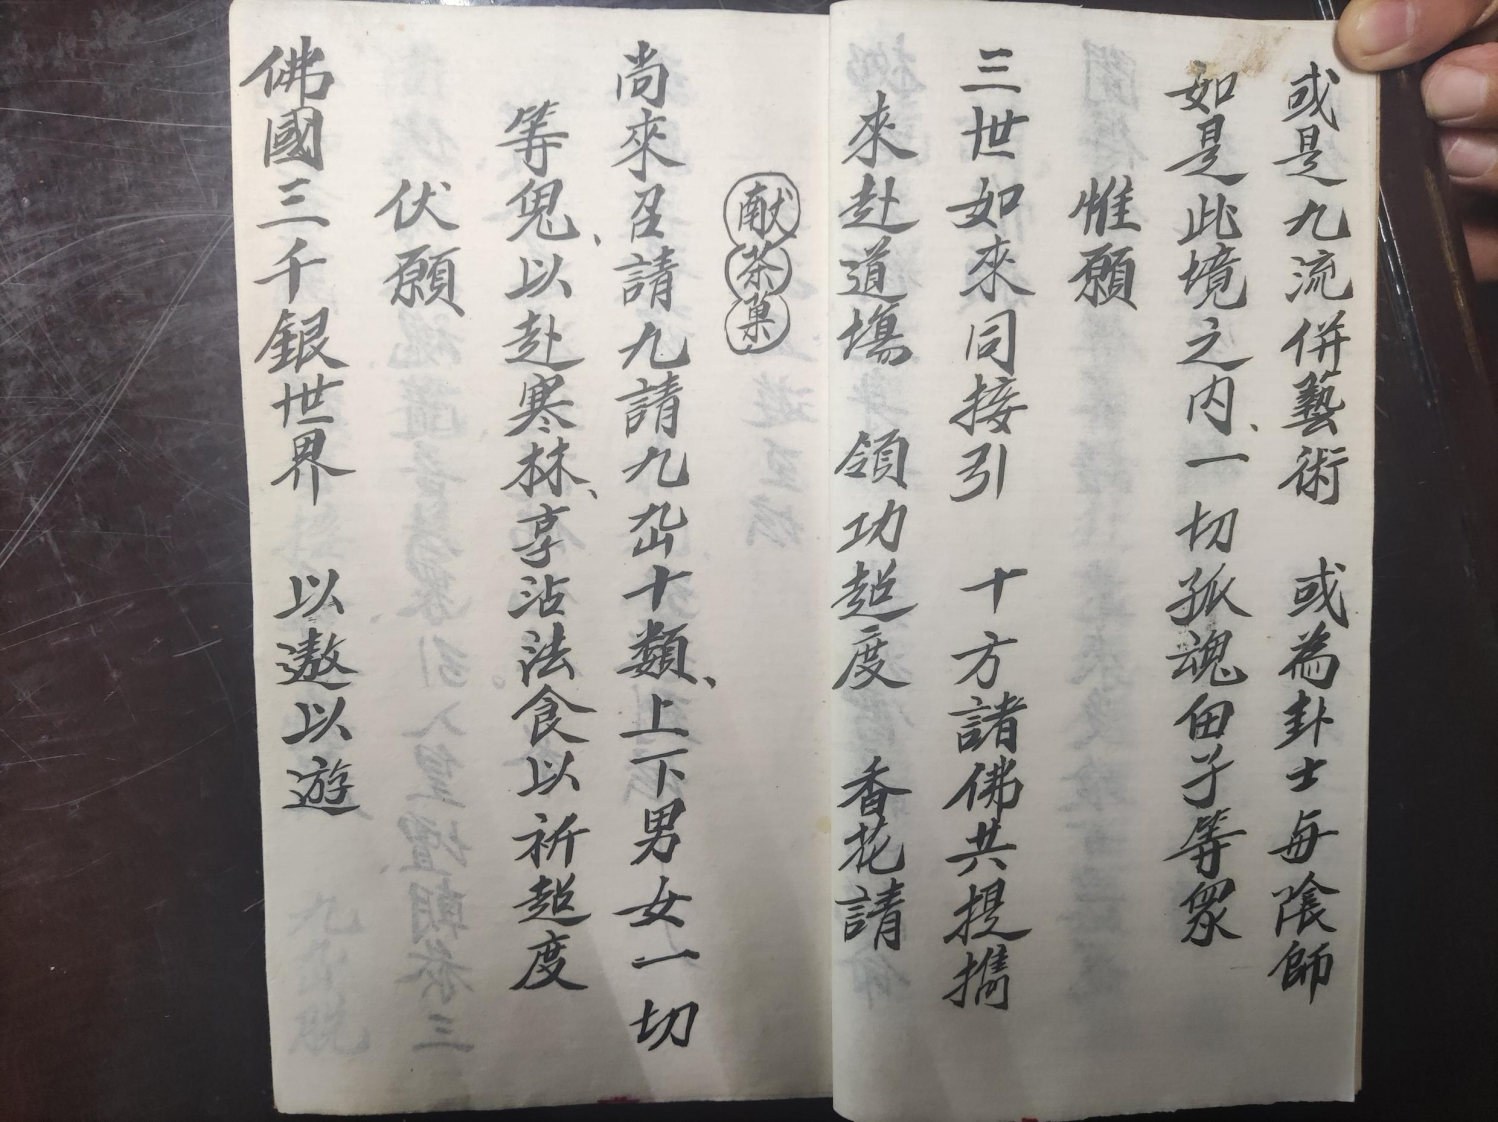 或是九流併藝術　或為卦士毎隂師
如是此境之内、一切孤魂由子等眾
惟願
三世如來同接引　十方諸佛共提携
來赴道塲　領功超度　香花請
献茶菓
尚來召請九請九出十類、上下男女一切
等鬼、以赴寒林、享沾法食以祈超度
伏願
佛國三千銀世界　以遨以遊